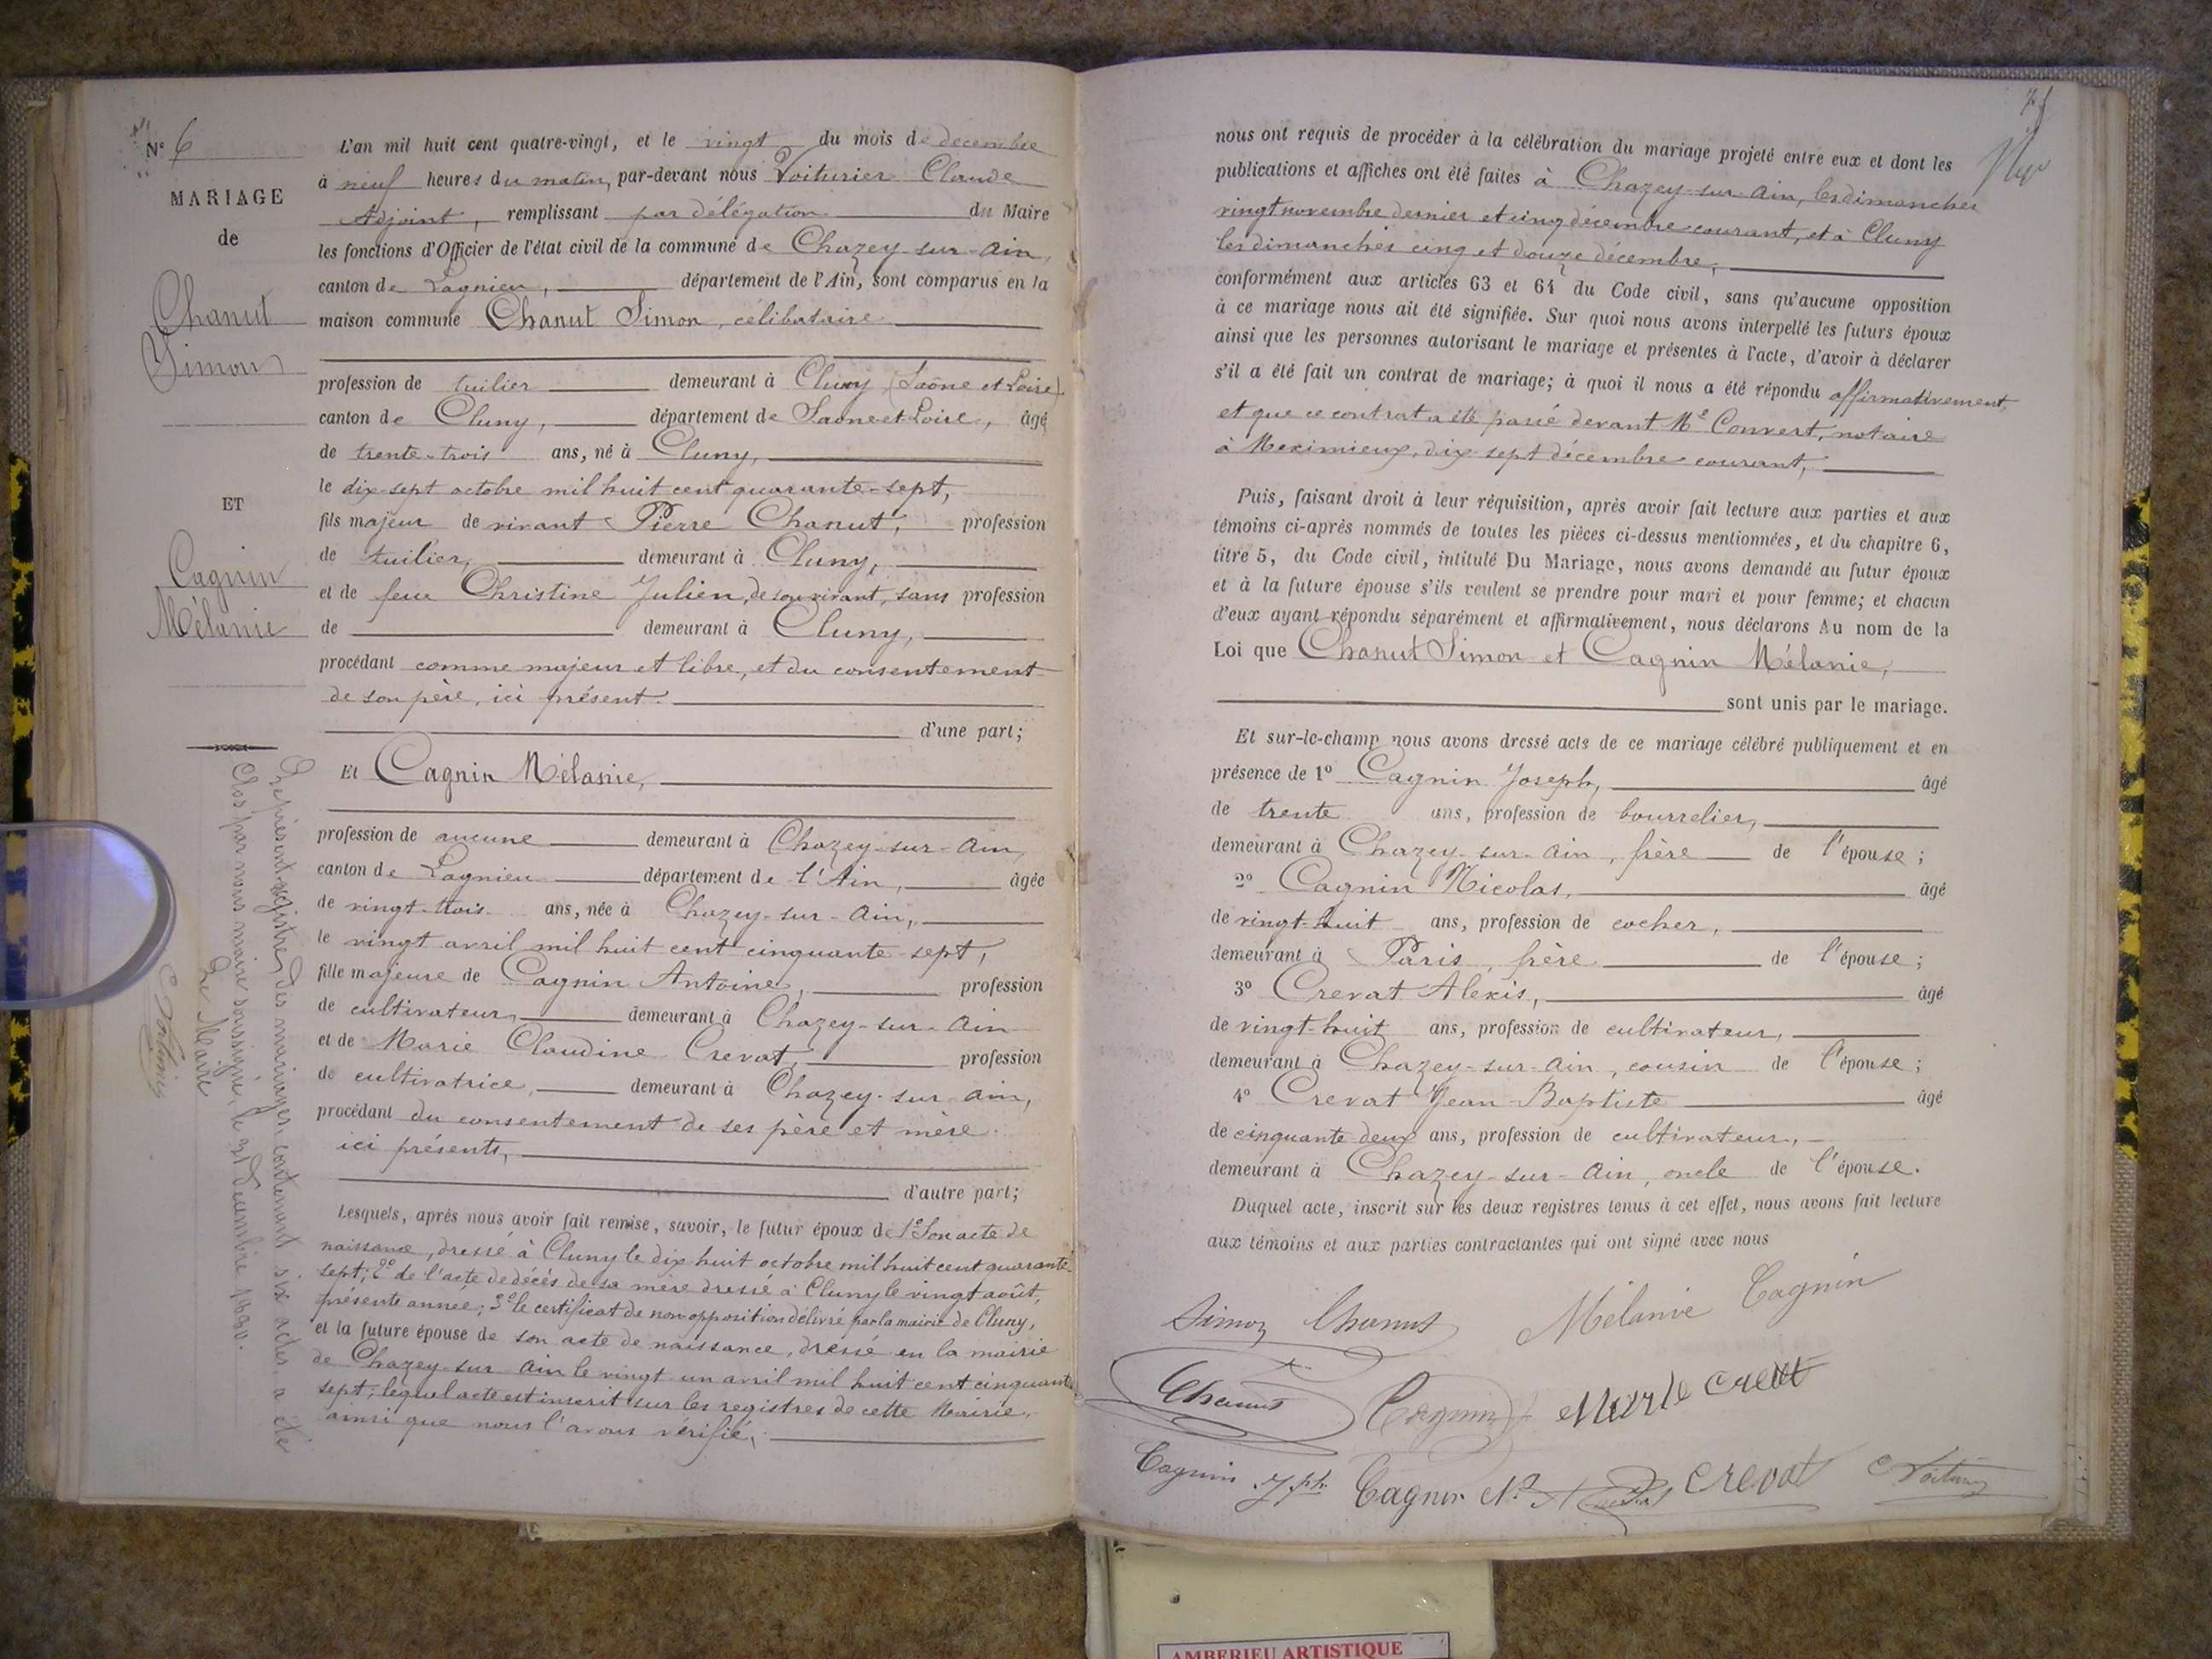 N° 6
MARIAGE
de
Chanut
Simon
ET
Cagnin
Mélanie
L'an mil huit cent quatre-vingt, et le vingt du mois de décembre
à neuf heures du matin, par-devant nous Voiturier Claude
Adjoint, remplissant par délégation du Maire
les fonctions d'Officier de l'état civil de la commune de Chazey-sur-Ain,
canton de Lagnieu, département de l'Ain, sont comparus en la
maison commune Chanut Simon, célibataire
profession de tuilier demeurant à Cluny (Saône et Loire)
canton de Cluny, département de Saône et Loire, âgé
de trente-trois ans, né à Cluny,
le dix-sept octobre mil huit cent quarante-sept,
fils majeur de vivant Pierre Chanut, profession
de tuilier, demeurant à Cluny,
et de feue Christine Julien, de son vivant, sans profession
de demeurant à Cluny,
procédant comme majeur et libre, et du consentement
de son père, ici présent.
d'une part;
Et Cagnin Mélanie,
profession de aucune demeurant à Chazey-sur-Ain,
canton de Lagnieu département de l'Ain, âgée
de vingt-trois ans, née à Chazey-sur-Ain,
le vingt avril mil huit cent cinquante-sept,
fille majeure de Cagnin Antoine, profession
de cultivateur, demeurant à Chazey-sur-Ain
et de Marie Claudine Crevat, profession
de cultivatrice, demeurant à Chazey-sur-Ain,
procédant du consentement de ses père et mère
ici présents,
d'autre part;
Lesquels, après nous avoir fait remise, savoir, le futur époux de 1° Son acte de
naissance, dressé à Cluny le dix huit octobre mil huit cent quarante-
sept; 2° de l'acte de décès de sa mère dressé à Cluny le vingt août,
présente année; 3° le certificat de non opposition délivré par la mairie de Cluny,
et la future épouse de son acte de naissance, dressé en la mairie
de Chazey-sur-Ain le vingt un avril mil huit cent cinquante
sept; lequel acte est inscrit sur les registres de cette Mairie,
ainsi que nous l'avons vérifié,
Le présent registre des mariages, contenant six actes a été
Clos par nous maire soussigné, le 31 Décembre 1880.
Le Maire
nous ont requis de procéder à la célébration du mariage projeté entre eux et dont les
publications et affiches ont été faites à Chazey-sur-Ain, les dimanches
vingt novembre dernier et cinq décembre courant, et à Cluny
les dimanches cinq et douze décembre,
conformément aux articles 63 et 64 du Code civil, sans qu'aucune opposition
à ce mariage nous ait été signifiée. Sur quoi nous avons interpellé les futurs époux
ainsi que les personnes autorisant le mariage et présentes à l'acte, d'avoir à déclarer
s'il a été fait un contrat de mariage; à quoi il nous a été répondu affirmativement,
et que ce contrat a été passé devant Me Convert, notaire
à Meximieux, dix-sept décembre courant,
Puis, faisant droit à leur réquisition, après avoir fait lecture aux parties et aux
témoins ci-après nommés de toutes les pièces ci-dessus mentionnées, et du chapitre 6,
titre 5, du Code civil, intitulé Du Mariage, nous avons demandé au futur époux
et à la future épouse s'ils veulent se prendre pour mari et pour femme; et chacun
d'eux ayant répondu séparément et affirmativement, nous déclarons Au nom de la
Loi que Chanut Simon et Cagnin Mélanie,
sont unis par le mariage.
Et sur-le-champ nous avons dressé acte de ce mariage célébré publiquement et en
présence de 1° Cagnin Joseph, âgé
de trente ans, profession de bourrelier,
demeurant à Chazey-sur-Ain, frère de l'épouse;
2° Cagnin Nicolas, âgé
de vingt-huit ans, profession de cocher,
demeurant à Paris, frère de l'épouse;
3° Crevat Alexis, âgé
de vingt-huit ans, profession de cultivateur,
demeurant à Chazey-sur-Ain, cousin de l'épouse;
4° Crevat Jean-Baptiste âgé
de cinquante-deux ans, profession de cultivateur,
demeurant à Chazey-sur-Ain, oncle de l'épouse.
Duquel acte, inscrit sur les deux registres tenus à cet effet, nous avons fait lecture
aux témoins et aux parties contractantes qui ont signé avec nous
Simon Chanut Mélanie Cagnin
Chanut Cagnin Marie Crevat
Cagnin Jph Cagnin N. Crevat
AMBERIEU ARTISTIQUE